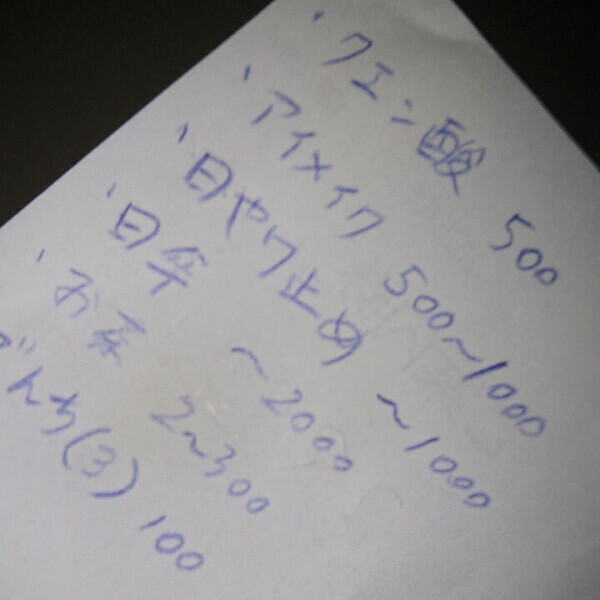 ・クエン酸 500
・アイメイク 500〜1000
・日やけ止め 〜1000
・日傘 〜2000
・お茶 2〜300
でんち(3) 100